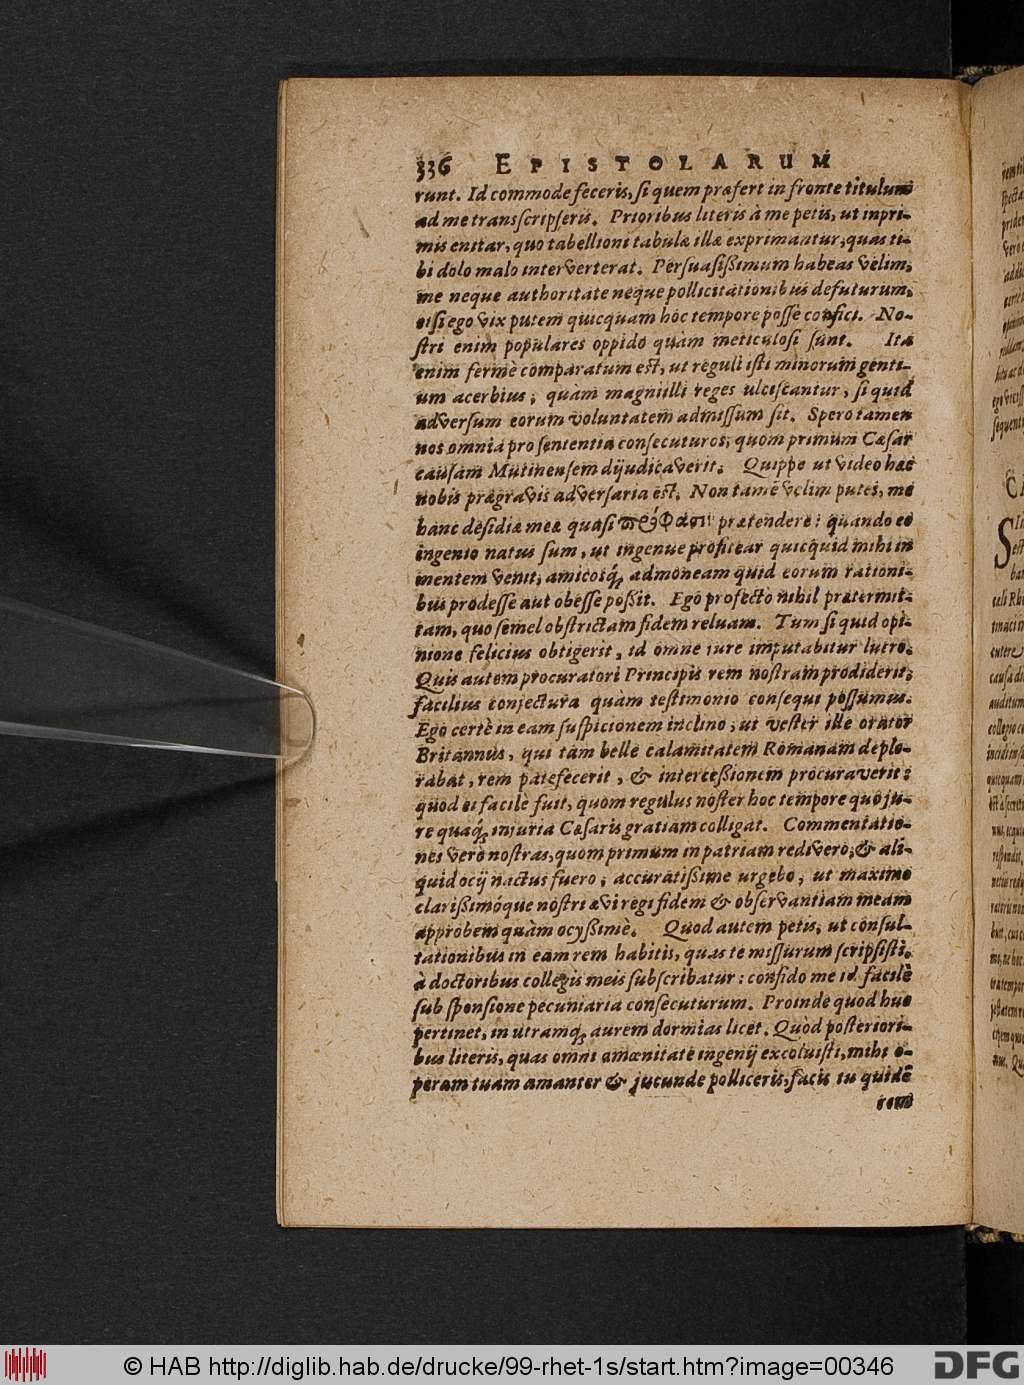 336 EPISTOLARUM
runt. Id commode feceris, si quem præfert in fronte titulum
ad me transcripseris. Prioribus literis à me petis, ut inpri-
mis enitar, quo tabellioni tabulæ illæ exprimantur, quas ti-
bi dolo malo interverterat. Persuasißimum habeas velim,
me neque authoritate neque pollicitationibus defuturum,
etsi ego vix putem quicquam hoc tempore posse confici. No-
stri enim populares oppido quàm meticulosi sunt. Ita
enim fermè comparatum est, ut reguli isti minorum genti-
um acerbius, quàm magni illi reges ulciscantur, si quid
adversum eorum voluntatem admissum sit. Spero tamen
nos omnia pro sententia consecuturos, quom primum Cæsar
causam Mutinensem dijudicaverit. Quippe ut video hæc
nobis prægravis adversaria est. Non tamē velim putes, me
hanc desidiæ meæ quasi πρόφασιν prætendere: quando eo
ingenio natus sum, ut ingenue profitear quicquid mihi in
mentem venit, amicosq́; admoneam quid eorum rationi-
bus prodesse aut obesse poßit. Ego profecto nihil prætermit-
tam, quo semel obstrictam fidem reluam. Tum si quid opi-
nione felicius obtigerit, id omne jure imputabitur lucro.
Quis autem procuratori Principis rem nostram prodiderit,
facilius conjectura quàm testimonio consequi possumus.
Ego certè in eam suspicionem inclino, ut vester ille orator
Britannus, qui tam belle calamitatem Romanam deplo-
rabat, rem patefecerit, & interceßionem procuraverit:
quod ei facile fuit, quom regulus noster hoc tempore quo ju-
re quaq́; injuria Cæsaris gratiam colligat. Commentatio-
nes verò nostras, quom primum in patriam redivero, & ali-
quid ocij nactus fuero, accuratißime urgebo, ut maximo
clarißimóque nostri ævi regi fidem & observantiam meam
approbem quàm ocyßimè. Quod autem petis, ut consul-
tationibus in eam rem habitis, quas te missurum scripsisti,
à doctoribus collegis meis subscribatur: confido me id facilè
sub sponsione pecuniaria consecuturum. Proinde quod huc
pertinet, in utramq; aurem dormias licet. Quòd posteriori-
bus literis, quas omni amœnitate ingenij excoluisti, mihi o-
peram tuam amanter & jucunde polliceris, facis tu quidē
rem
© HAB http://diglib.hab.de/drucke/99-rhet-1s/start.htm?image=00346
DFG